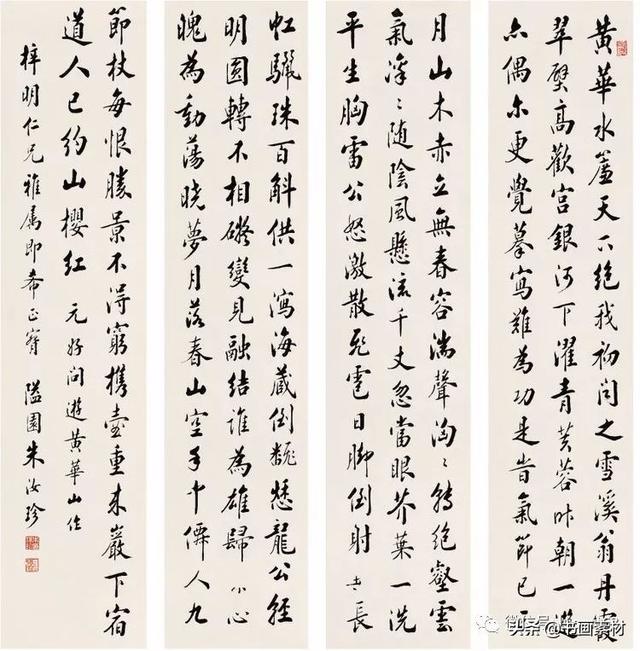 黄華水簾天下絶我初聞之雪溪翁丹霞
翠壁高歡宫銀河下濯青芙蓉昨朝一遊
亦偶尔更覺摹寫難為功是旹氣節已
月山木赤立無春容湍聲洶〻轉絶壑雲
氣凛〻随陰風懸流千丈忽當眼芥葉一洗
平生胸雷公怒激散飛雹日脚倒射垂長
虹驪珠百斛供一瀉海藏倒翻愁龍公輕
明圓轉不相礙變見融結誰為雄歸来心
魄為動蕩曉夢月落春山空手中僊人九
節杖每恨勝景不得窮携壺重来巖下宿
道人已約山櫻紅 元好問遊黄華山作
梓明仁兄雅属即希正 隘園朱汝珍
头条 @书画素材